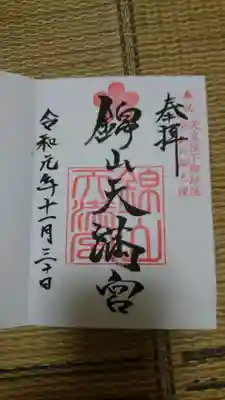 奉拝
錦山天満宮
錦山
天満宮
令和元年十一月三十日